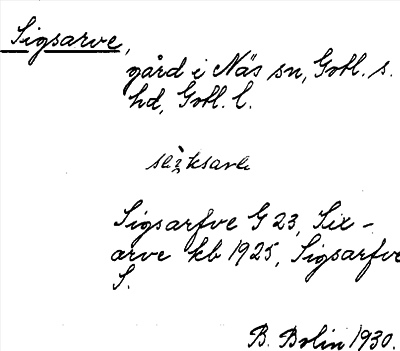 Sigsarve,
gård i Näs sn, Gotl. s.
hd, Gotl. l.
Sigsarfve G 23, Six-
arve kb 1925, Sigsarfve
S.
B. Bolin 1930.